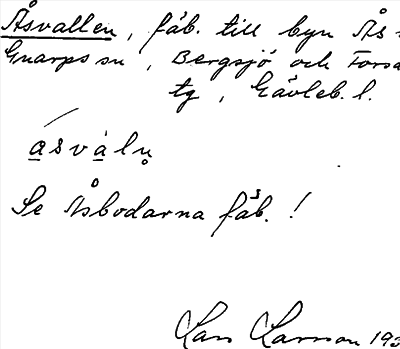 Åsvallen, fäb. till byn Ås
Gnarps sn, Bergsjö och Forsa
tg, Gävleb. l.
åsvàlṇ
Se Åsbodarna fäb.!
Lars Larsson 193